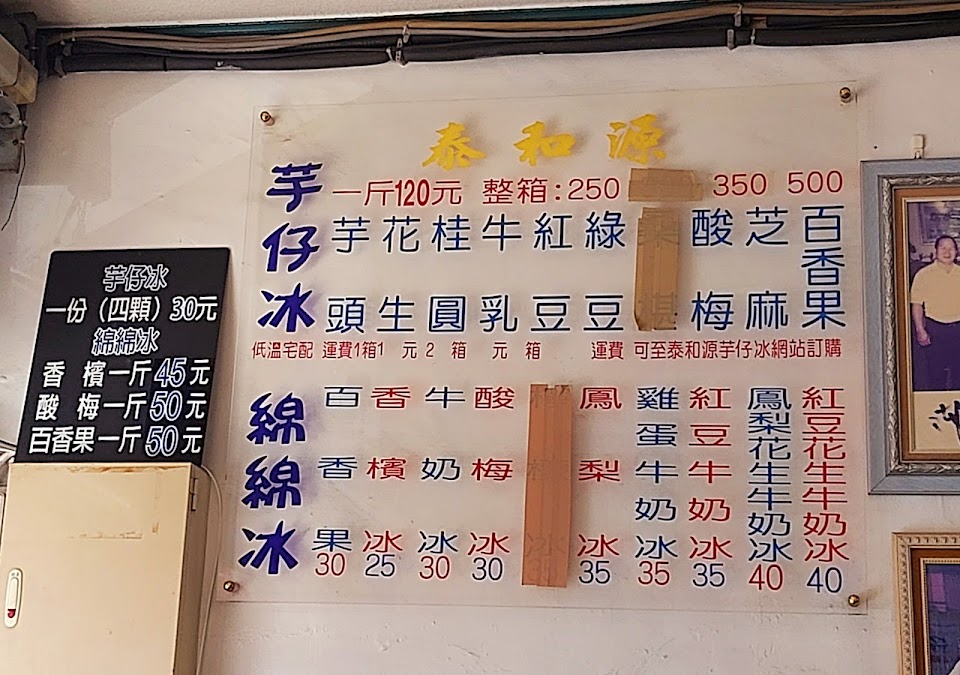 泰和源
芋仔冰
一斤120元 整箱:250 350 500
芋頭
花生
桂圓
牛乳
紅豆
綠豆
酸梅
芝麻
百香果
低溫宅配 運費1箱1 元2 箱 元 箱 運費 可至泰和源芋仔冰網站訂購
綿綿冰
百香果30
香檳冰25
牛奶冰30
酸梅冰30
鳳梨冰35
雞蛋牛奶冰35
紅豆牛奶冰35
鳳梨花生牛奶冰40
紅豆花生牛奶冰40
芋仔冰
一份（四顆）30元
綿綿冰
香檳一斤45元
酸梅一斤50元
百香果一斤50元